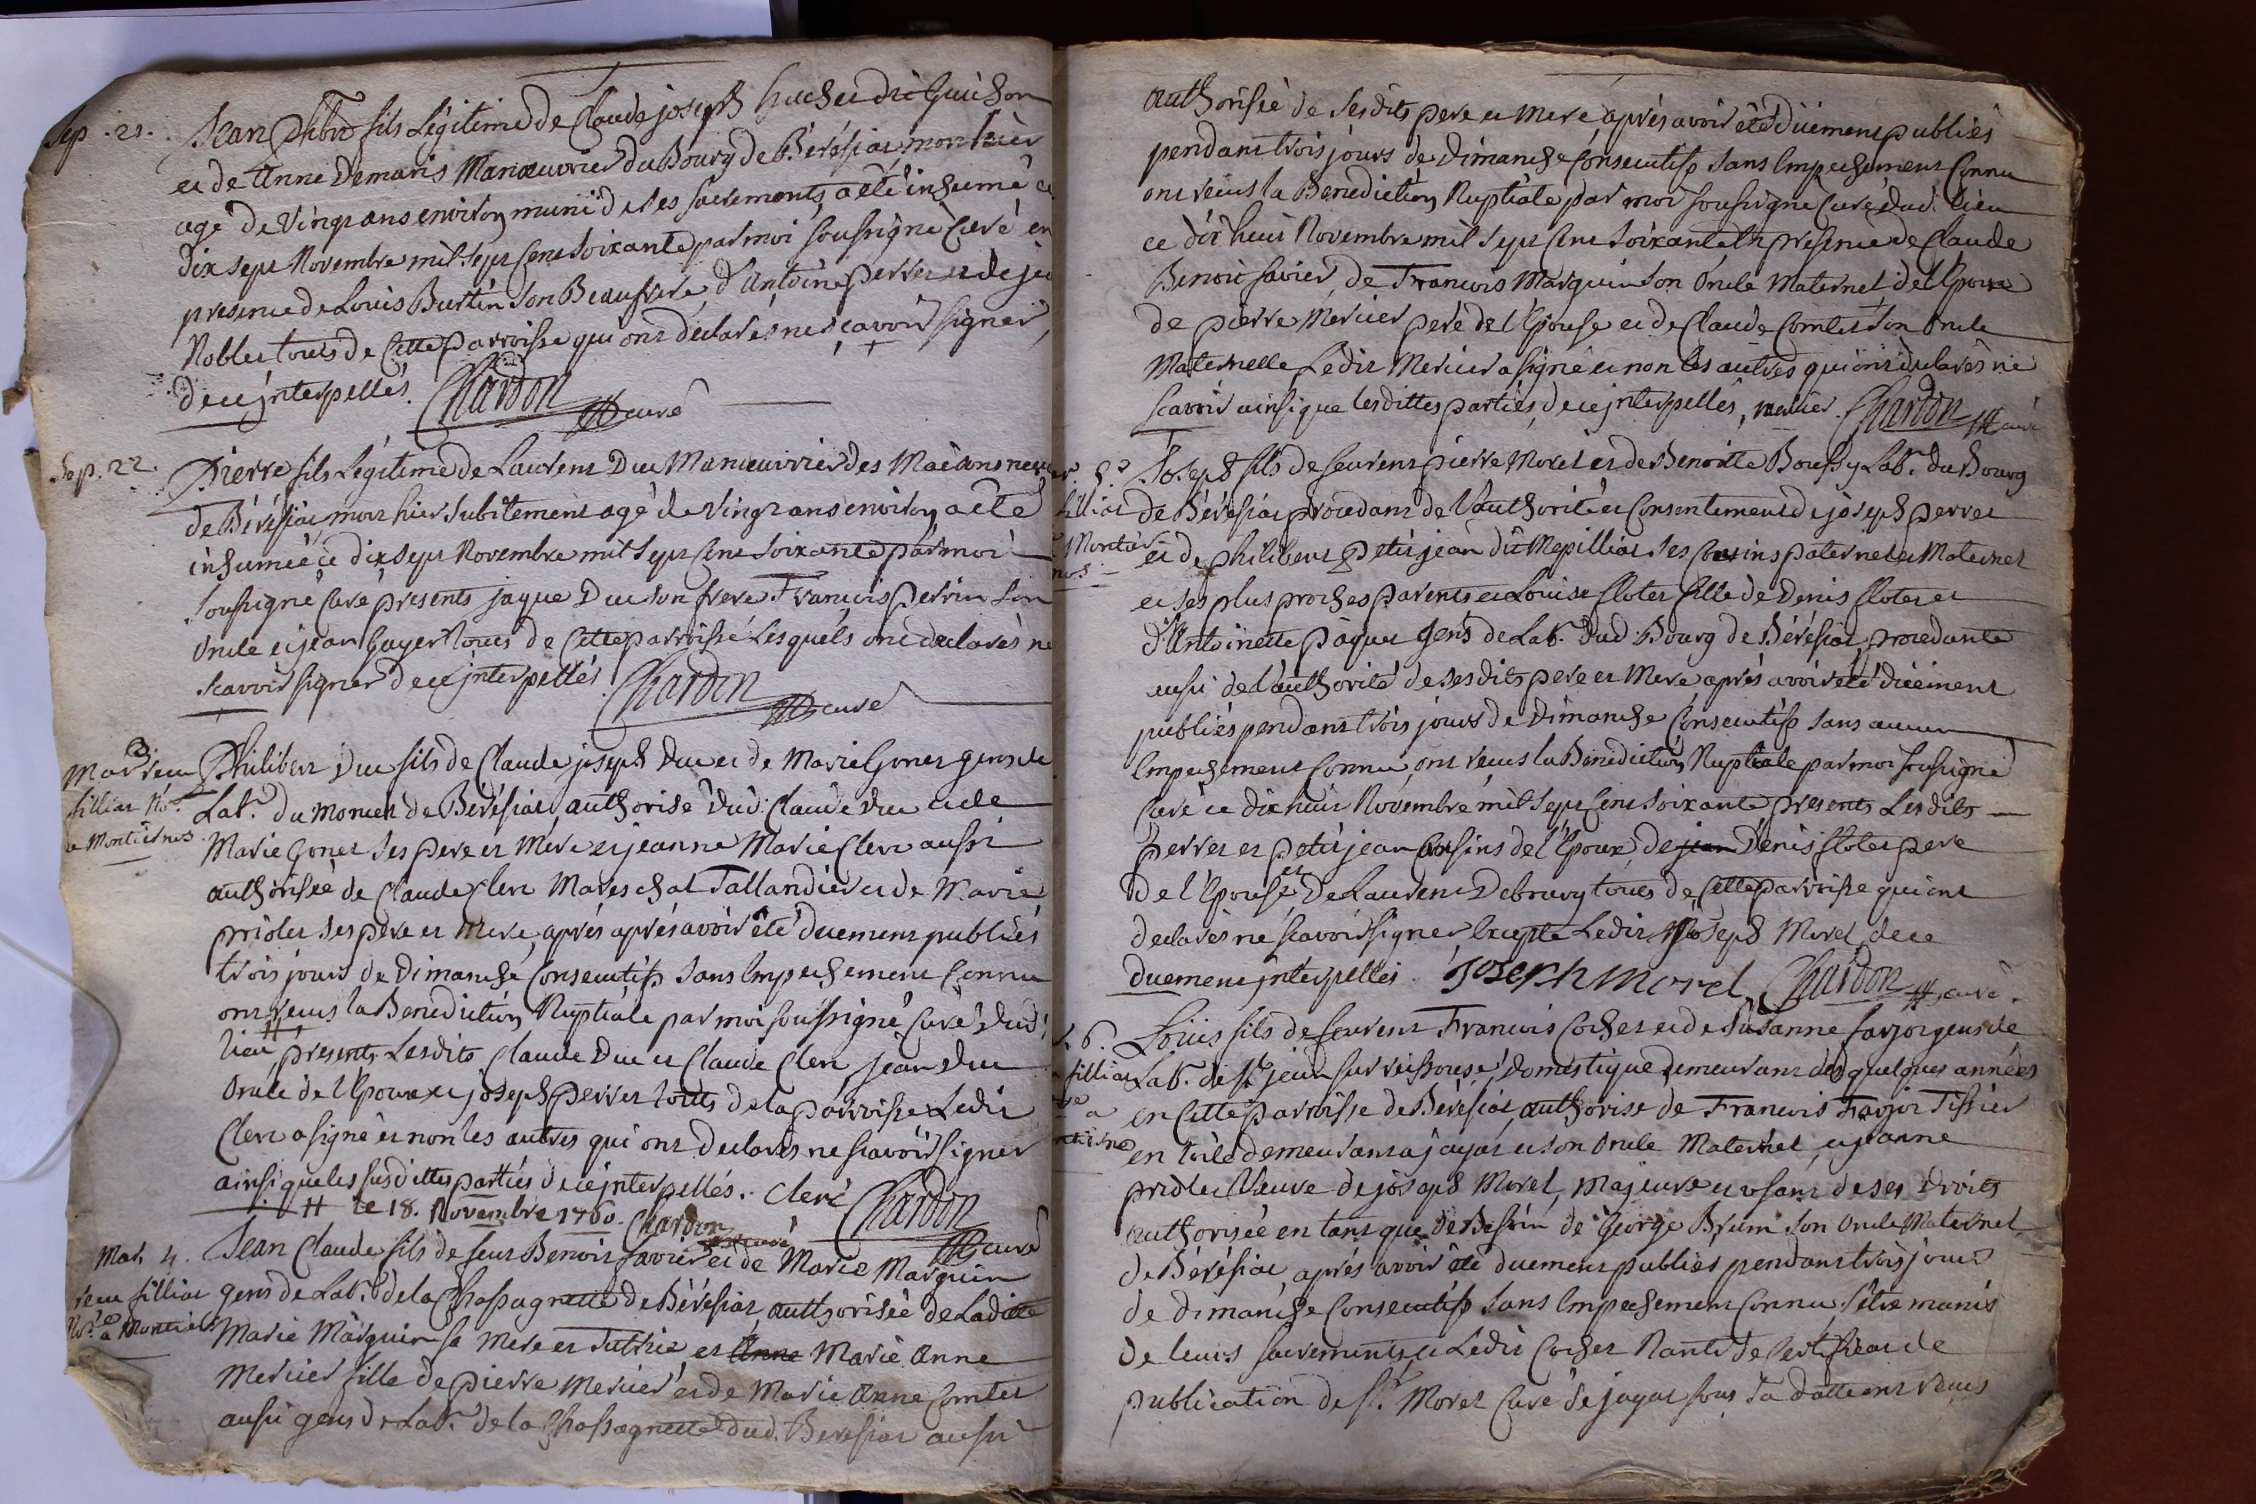 Sep. 21.
Jean fils Légitime de Claude joseph huchet dit Guichon
et de Anne Demaris Manœuvrier du Bourg de Béréÿsiat mort hier
agé de vingt ans environ muni de ses sacrements a eté inhumé ce
dix sept Novembre mil sept Cent soixante par moi soussigné Curé en
presence de Louis Burtin son Beaufrere, d'Antoine perret et de
Noblet touts de Cette parroisse qui ont déclarés ne sçavoir signer,
de ce jnterpellés. Chardon curé
Sep. 22.
Pierre fils Légitime de Laurent Duc Manœuvrier des
de Béréÿsiat mort hier subitement agé de vingt ans environ a eté
inhumé ce dix sept Novembre mil sept Cent soixante par moi
soussigné Curé presents jaque Duc son frere Francois perrin son
Oncle et jean Guyer touts de Cette parroisse Lesquels ont declarés ne
scavoir signer de ce jnterpellés Chardon curé
Mar. 3.
filliat No.re
a Montiernos
Philibert Duc fils de Claude joseph Duc et de Marie Gonet gens de
Lab.r du de Beréÿsiat authorisé dud. Claude Duc et de
Marie Gonet ses pere et Mere et jeanne Marie Clerc aussi
authorisée de Claude Clerc Mareschal Tallandier et de Marie
priolet ses pere et Mere, après après avoir été duement publiés
trois jours de Dimanche Consecutifs sans Empechement Connu
ont reçus la Benediction Nuptiale par moi soussigné Curé dud.
lieu # presents Lesdits Claude Duc et Claude Clerc, jean Duc
Oncle de l'Epoux et joseph perret touts de la parroisse Ledit
Clerc a signé et non les autres qui ont Declarés ne scavoir signer
ainsi que les susdittes parties de ce jnterpellés. Clerc Chardon
# le 18. Novembre 1760. Chardon curé curé
Mar. 4.
reçu filliat
No.re a Montier.
Jean Claude fils de feut Benoit favier et de Marie Marguin
gens de Lab.r de la Chassagnette de Béréÿsiat authorisée de Laditte
Marie Marguin sa Mere et Tutrice et Anne Marie Anne
Mercier fille de pierre Mercier et de Marie Anne Comtet
aussi gens de Lab.r de la Chassagnette dud. Beresiat aussi
authorisée de sesdits pere et Mere, après avoir été düement publiés
pendant trois jours de Dimanche Consecutifs sans Empechement Connu
ont reçus la Benediction Nuptiale par moi soussigné Curé dud. lieu
ce dix huit Novembre mil sept Cent soixante En presence de Claude
Benoit favier, de Francois Marguin son Oncle Maternel de l'Epoux
de pierre Mercier pere de l'Epouse et de Claude Comtet son Oncle
Maternelle, Ledit Mercier a signé et non les autres qui ont declarés ne
scavoir ainsi que lesdittes parties, de ce jnterpellés, mercier. Chardon curé
5.
filliat
Montier
nos
Joseph fils de feu Pierre Morel et de Benoitte Boussy Lab.r du Bourg
de Béréÿsiat procedant de l'authorité et Consentement de joseph perret
et de philibert petitjean dit Mepilliat ses Cousins paternel et Maternel
et ses plus proches parents et Louise flotet fille de Denis flotet et
d'Antoinette pâquet gens de Lab.r dud. Bourg de Béréÿsiat, procedante
aussi de l'authorité de sesdits pere et Mere après avoir été düement
publiés pendant trois jours de Dimanche Consecutifs sans aucun
Empechement Connu, ont reçus la Benediction Nuptiale par moi soussigné
Curé ce dix huit Novembre mil sept Cent soixante presents Lesdits
perret et petitjean Cousins de l'Epoux, de jean Denis flotet pere
de l'Epouse et De Laurent Debourg touts de Cette parroisse qui ont
declarés ne scavoir signer Excepté Ledit Joseph Morel, de ce
duement jnterpellés. Joseph Morel Chardon curé.
6.
filliat
a
Louis fils de feu Francois Cochet et de Susanne farjot gens de
Lab.r de S.t jean sur reissouse, Domestique demeurant dès quelques années
en Cette parroisse de Béréÿsiat, authorisé de Francois Farjot Tissier
en toile demeurant a jayat et son Oncle Maternel, et jeanne
priolet Veuve de joseph Morel, Majeure et usant de ses Droits
authorisée en tant que De Besoin de George Brun son Oncle Maternel
de Béréÿsiat, après avoir été duement publiés pendant trois jours
de Dimanche Consecutifs sans Empechement Connu, s'être munis
de leurs sacrements, et Ledit Cochet Nanti de Certificat de
publication de S.r Morel Curé de jayat sous sa datte ont reçus